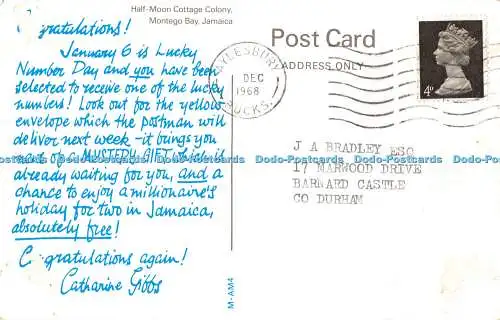 Half-Moon Cottage Colony,
Montego Bay, Jamaica
gratulations!
January 6 is Lucky
Number Day and you have been
selected to receive one of the lucky
numbers! Look out for the yellow
envelope which the postman will
deliver next week - it brings you
news of a MYSTERY GIFT which is
already waiting for you, and a
chance to enjoy a millionaire's
holiday for two in Jamaica,
absolutely free!
C gratulations again!
Catharine Gibbs
M-AM4
Post Card
ADDRESS ONLY
AYLESBURY
DEC
1968
BUCKS.
4D
J A BRADLEY ESQ
17 MARWOOD DRIVE
BARNARD CASTLE
CO DURHAM
Dodo-Postcards Dodo-Postcards Dodo-Postcards Dodo-Postcards Dodo-Postcards